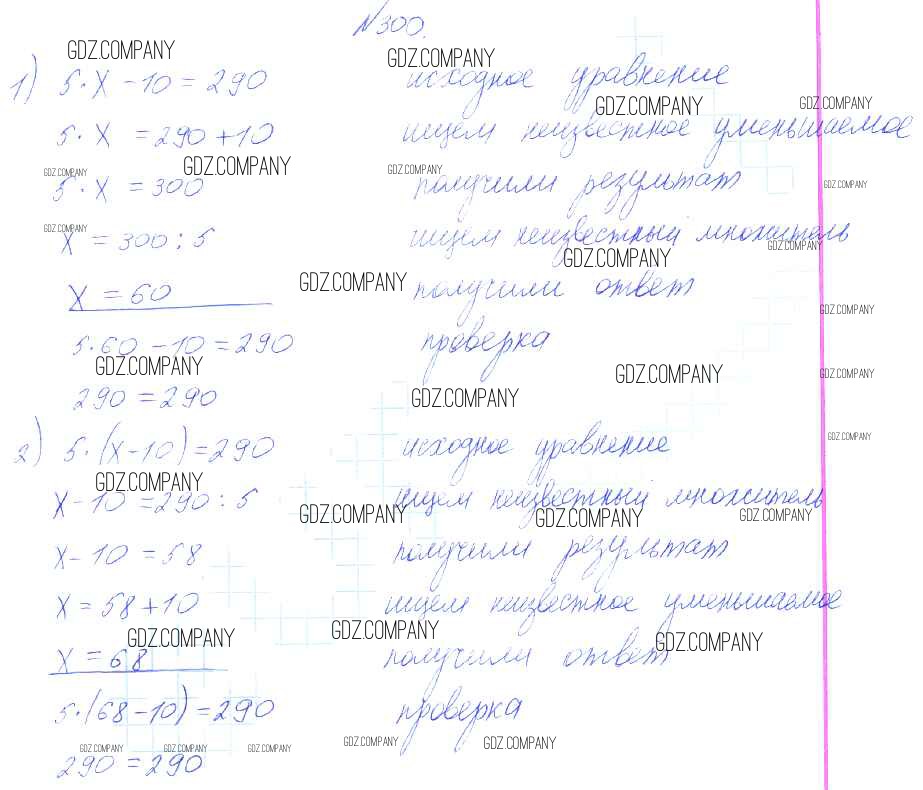 №300.
GDZ.COMPANY GDZ.COMPANY
1) 5·x-10=290 исходное уравнение
GDZ.COMPANY GDZ.COMPANY
5·x=290+10 ищем неизвестное уменьшаемое
GDZ.COMPANY GDZ.COMPANY GDZ.COMPANY
5·x=300 получили результат
GDZ.COMPANY
GDZ.COMPANY
x=300:5 ищем неизвестный множитель
GDZ.COMPANY GDZ.COMPANY
GDZ.COMPANY
x=60 получили ответ
GDZ.COMPANY
5·60-10=290 проверка
GDZ.COMPANY GDZ.COMPANY GDZ.COMPANY
290=290
GDZ.COMPANY
GDZ.COMPANY
2) 5·(x-10)=290 исходное уравнение
GDZ.COMPANY
x-10=290:5 ищем неизвестный множитель
GDZ.COMPANY GDZ.COMPANY GDZ.COMPANY
x-10=58 получили результат
x=58+10 ищем неизвестное уменьшаемое
GDZ.COMPANY GDZ.COMPANY GDZ.COMPANY
x=68 получили ответ
5·(68-10)=290 проверка
GDZ.COMPANY GDZ.COMPANY GDZ.COMPANY GDZ.COMPANY GDZ.COMPANY
290=290